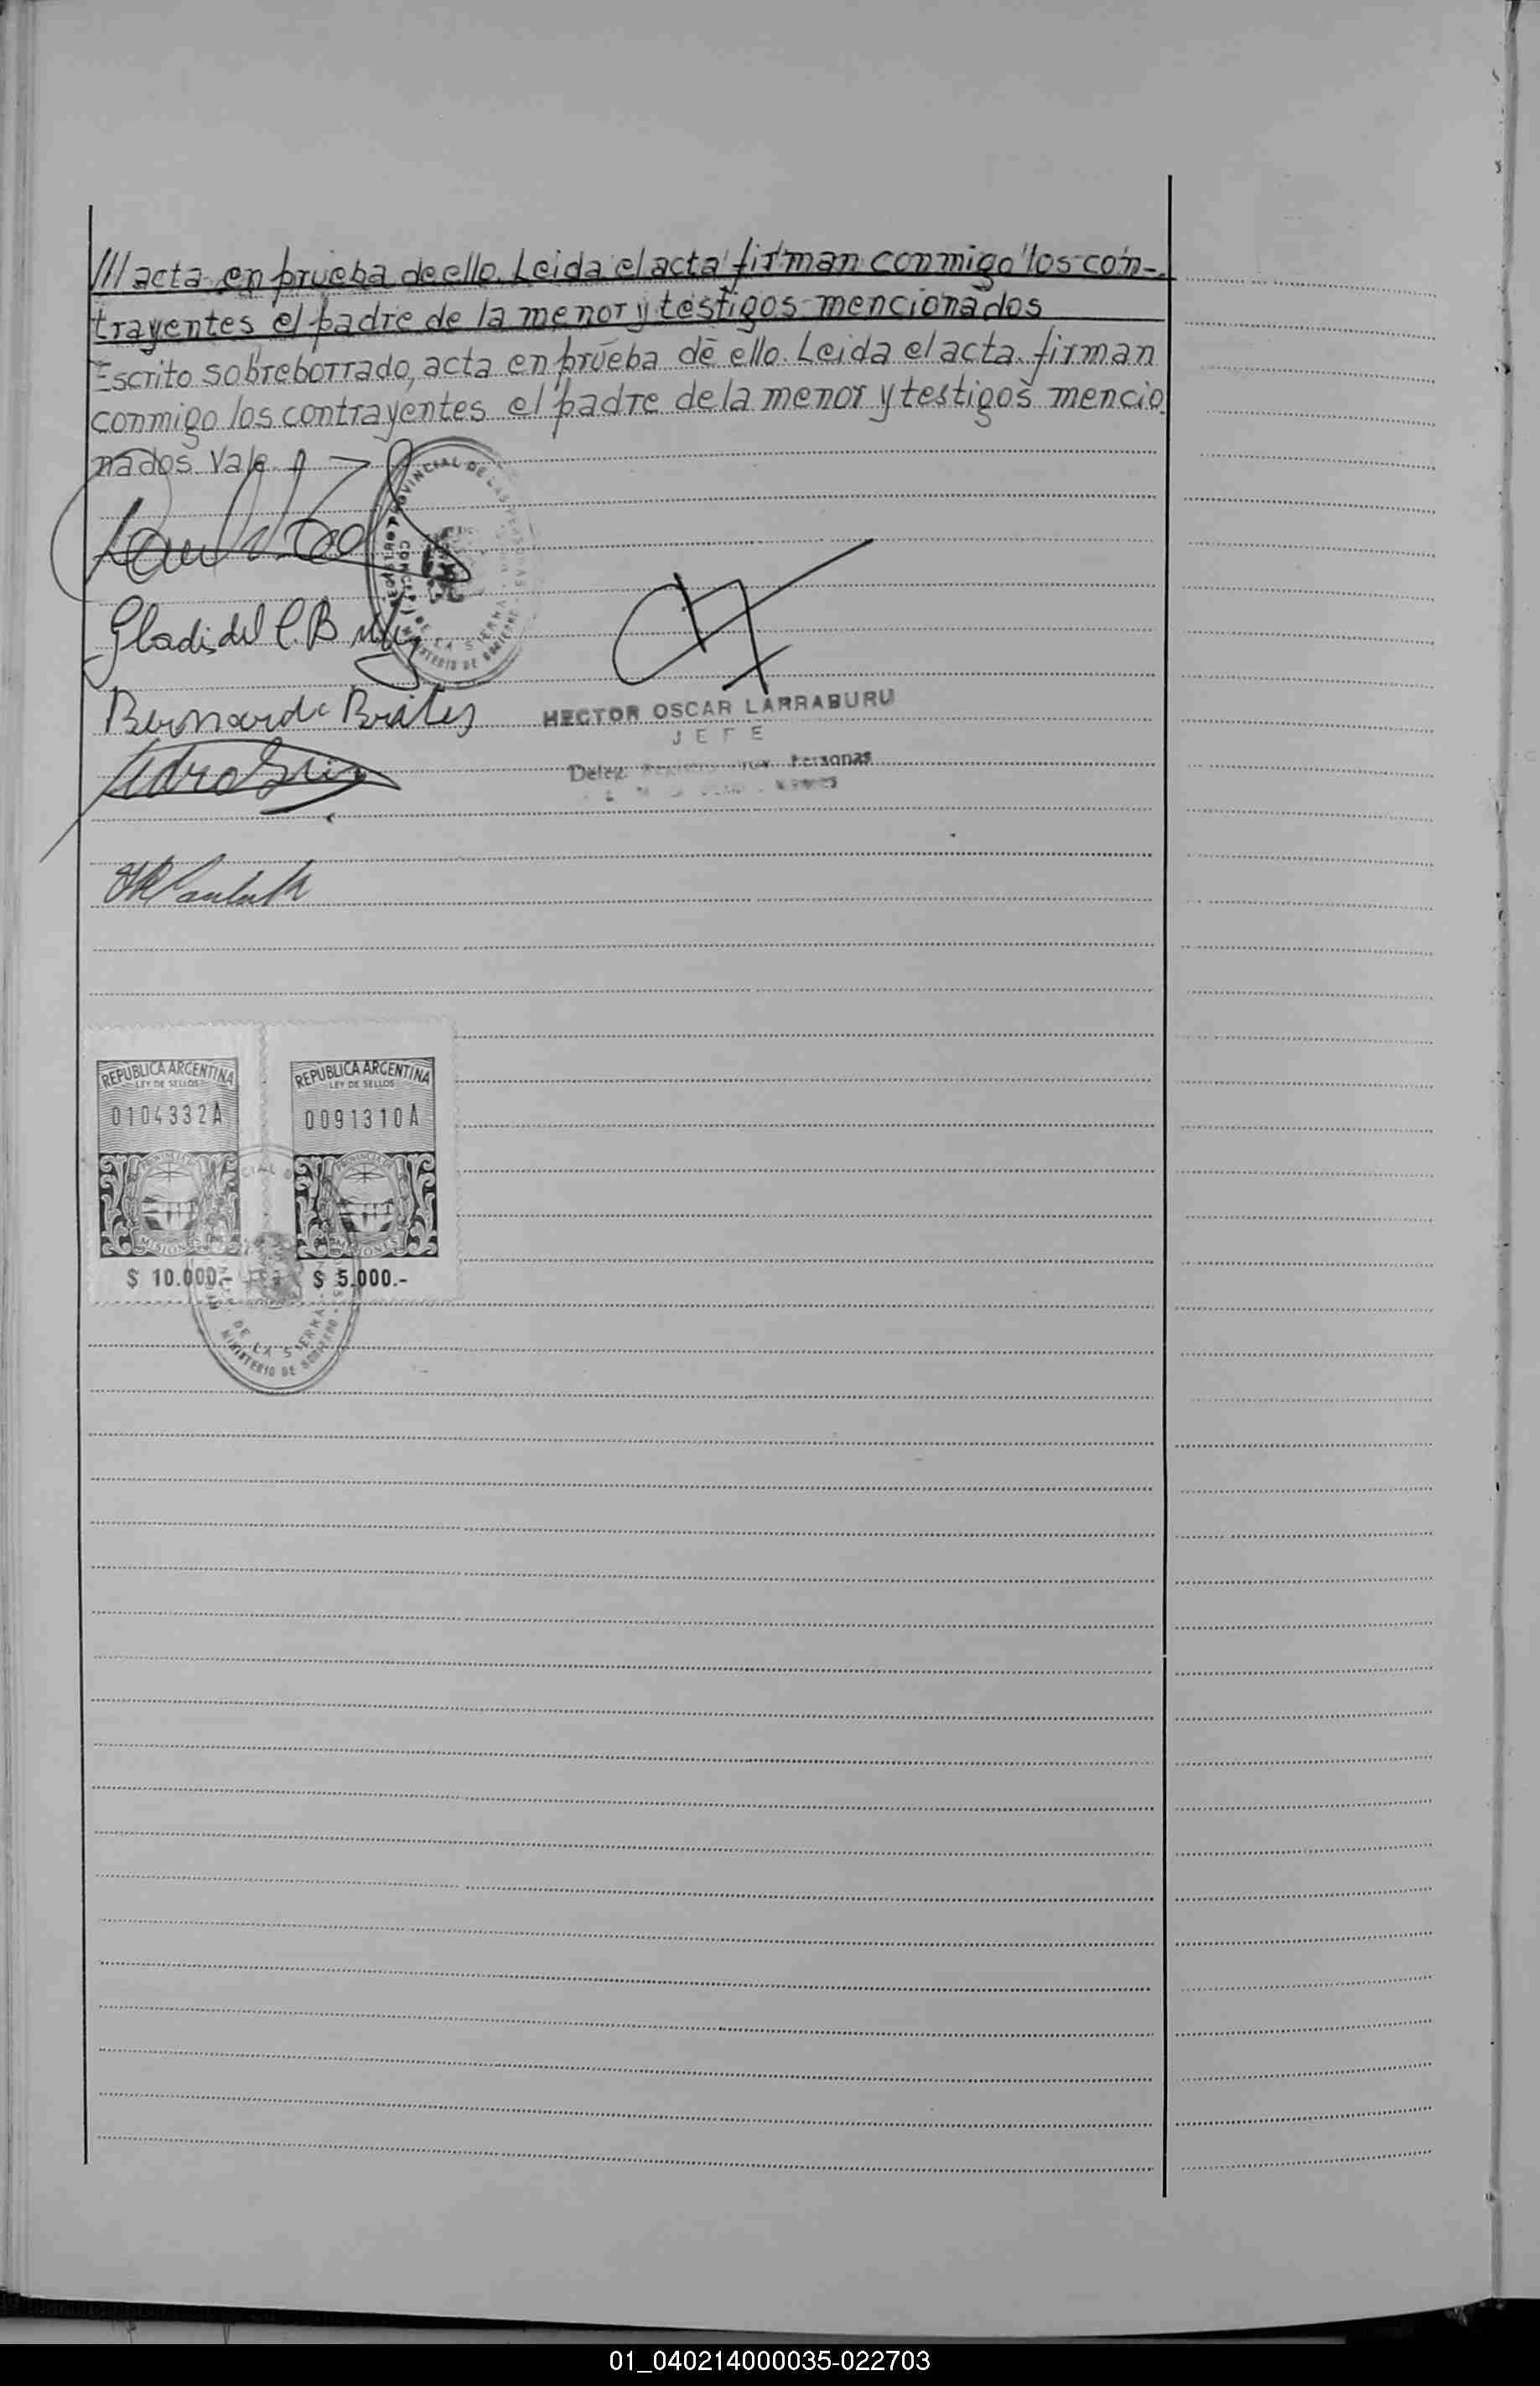 /// acta en prueba de ello. Leida el acta firman conmigo los con-
trayentes el padre de la menor y testigos mencionados
Escrito sobreborrado, acta en prueba de ello. Leida el acta firman
conmigo los contrayentes el padre de la menor y testigos mencio
nados Vale
Gladis del C. B
Bernarda Brites
HECTOR OSCAR LARRABURU
JEFE
Deleg. Personas
REPUBLICA ARGENTINA
LEY DE SELLOS
0104332A
MISIONES
$ 10.000.-
REPUBLICA ARGENTINA
LEY DE SELLOS
0091310A
PROVINCIA DE
MISIONES
$ 5.000.-
DE LA SIERRA
MINISTERIO DE GOBIERNO
01_040214000035-022703